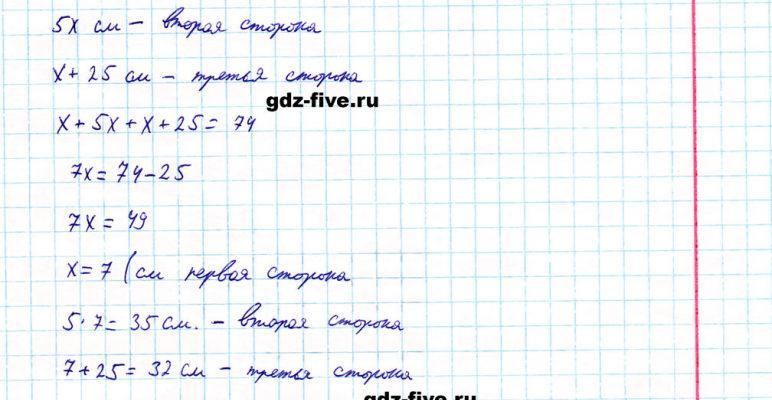 5x см – вторая сторона
x + 25 см – третья сторона
gdz-five.ru
x + 5x + x + 25 = 74
7x = 74 – 25
7x = 49
x = 7 (см первая сторона
5 · 7 = 35 см. – вторая сторона
7 + 25 = 32 см – третья сторона
gdz-five.ru